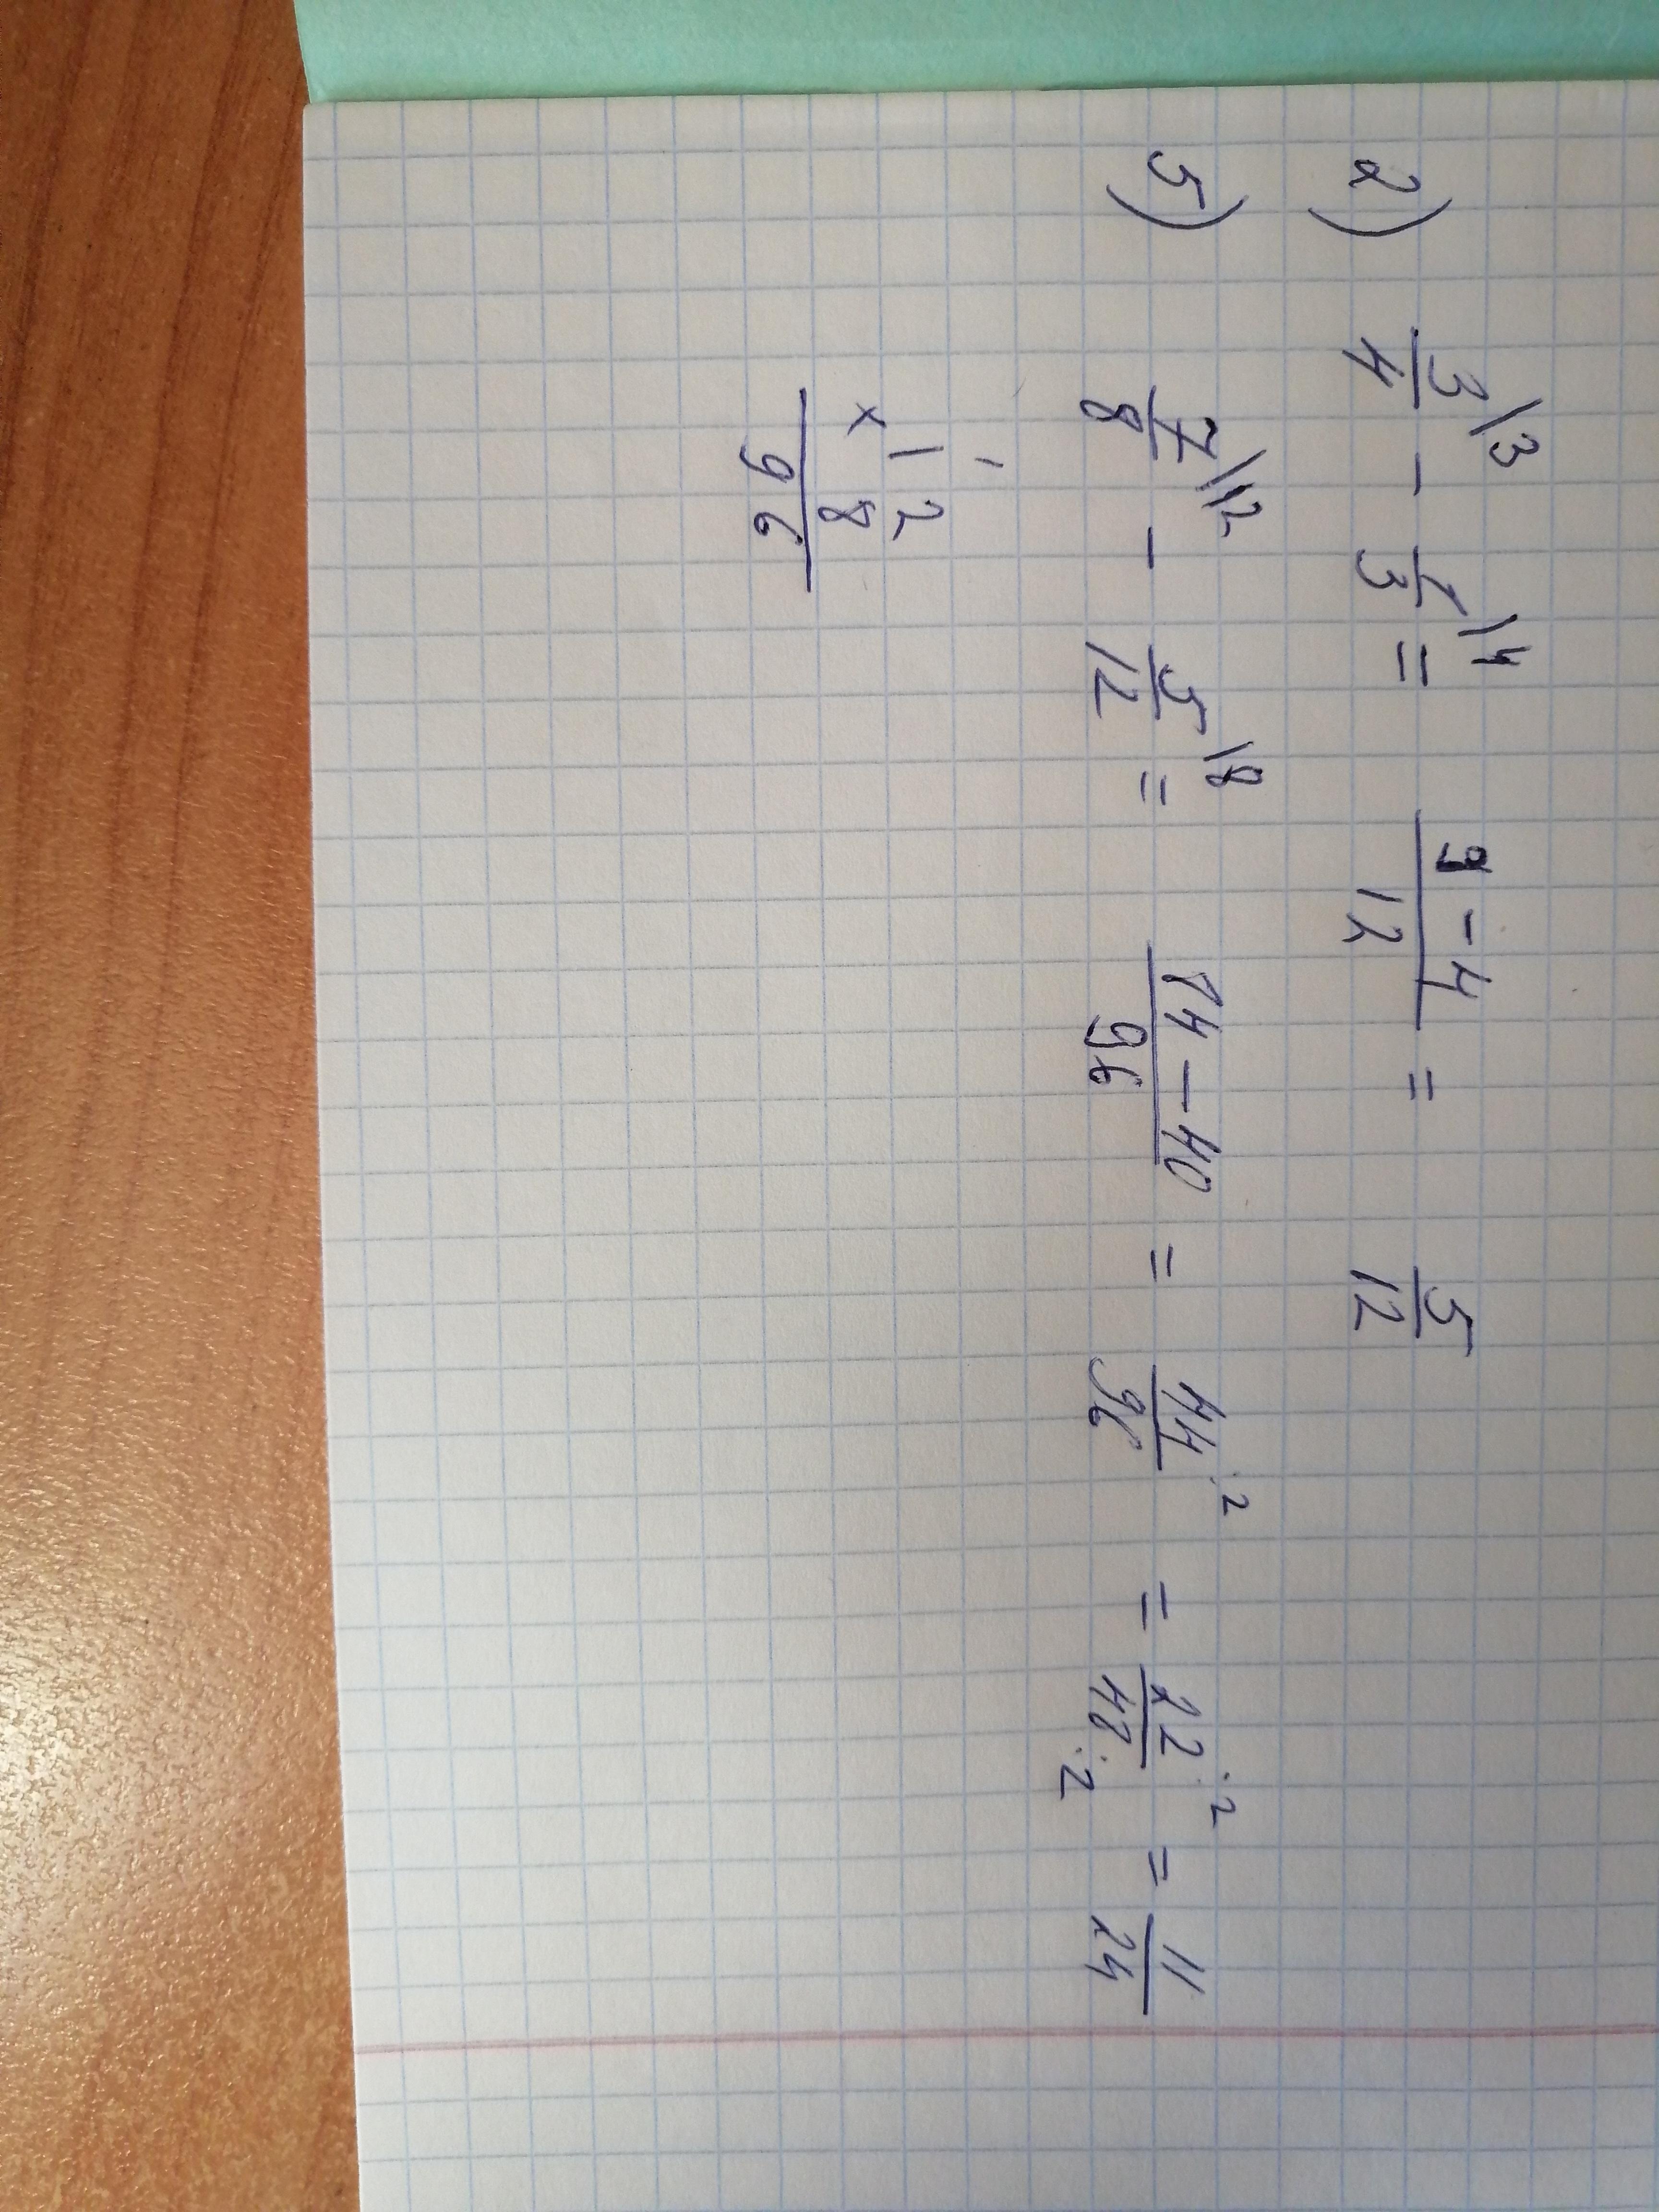 2) 3/4 \3 - 1/3 \4 = 9-4/12 = 5/12
5) 7/8 \12 - 5/12 \8 = 84-40/96 = 44/96 :2 = 22/48 :2 :2 = 11/24
1
12
x 8
96